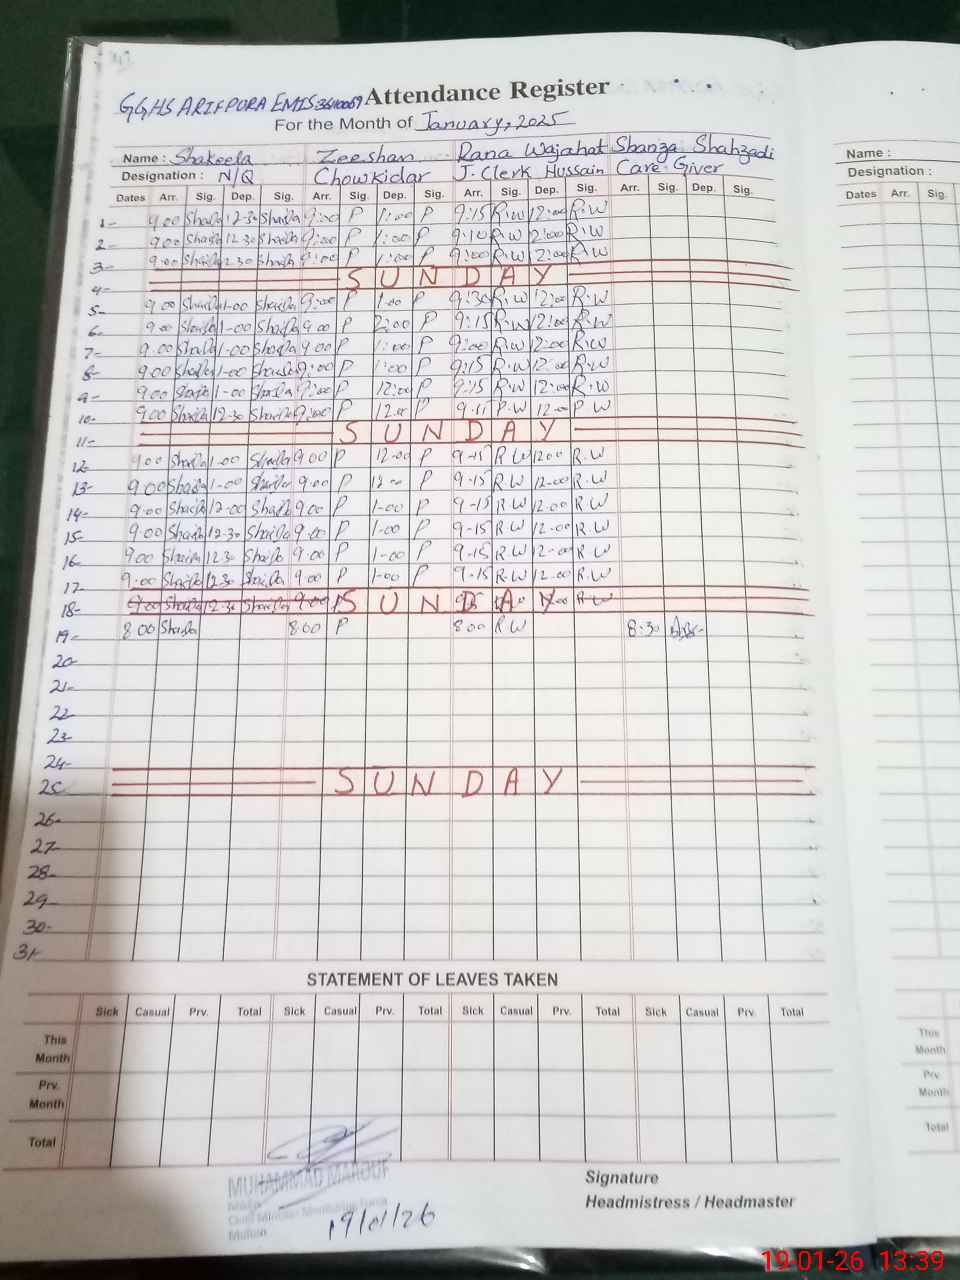 GGHS ARIFPORA EMIS Attendance Register
For the Month of January, 2025
Name : Shakeela Zeeshan Rana Wajahat Shanza Shahzadi Name :
Designation : N/Q Chowkidar J. Clerk Hussain Care Giver Designation :
Dates Arr. Sig. Dep. Sig. Arr. Sig. Dep. Sig. Arr. Sig. Dep. Sig. Arr. Sig. Dep. Sig. Dates Arr. Sig.
1- 9:00 12-30 9:00 P 1:00 P 9:15 R.W 12:00 R.W
2- 9:00 12-30 9:00 P 1:00 P 9:10 R.W 2:00 R.W
3- 9:00 12-30 9:00 P 1:00 P 9:00 R.W 2:00 R.W
4- SUNDAY
5- 9:00 1-00 9:00 P 1-00 P 9:30 R.W 12:00 R.W
6- 9:00 1-00 9:00 P 2:00 P 9:15 R.W 12:00 R.W
7- 9:00 1-00 9:00 P 1:00 P 9:00 R.W 12:00 R.W
8- 9:00 1-00 9:00 P 1:00 P 9:15 R.W 12:00 R.W
9- 9:00 1-00 9:00 P 12:00 P 9:15 R.W 12:00 R.W
10- 9:00 12-30 9:00 P 12:00 P 12-00
11- SUNDAY
12- 9:00 1-00 9:00 P 12-00 P 9-15 R.W 12:00 R.W
13- 9:00 1-00 9:00 P 12-00 P 9-15 R.W 12-00 R.W
14- 9:00 12-00 9:00 P 1-00 P 9-15 R.W 12.00 R.W
15- 9:00 12-30 9:00 P 1-00 P 9-15 R.W 12-00 R.W
16- 9:00 12-30 9:00 P 1-00 P 9-15 R.W 12-00 R.W
17- 9:00 12-30 9:00 P 1-00 P 9-15 R.W 12-00 R.W
18- 9:00 12-30 9:00 SUNDAY R.W
19- 8:00 8:00 P 8:00 R.W 8:30
20-
21-
22
23-
24-
25 SUNDAY
26-
27-
28-
29-
30-
31-
STATEMENT OF LEAVES TAKEN
Sick Casual Prv. Total Sick Casual Prv. Total Sick Casual Prv. Total Sick Casual Prv. Total
This Month This Month
Prv. Month Prv. Month
Total Total
MUHAMMAD MAROUF
19/01/26
Signature
Headmistress / Headmaster
19-01-26 13:39